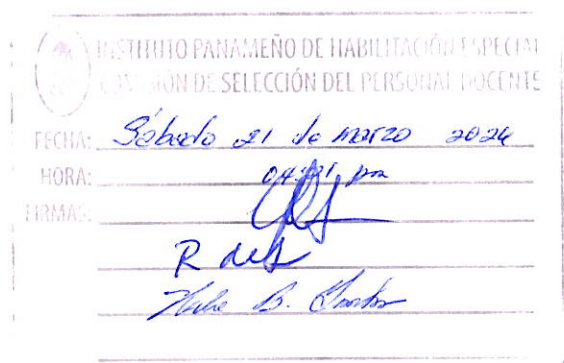 INSTITUTO PANAMEÑO DE HABILITACIÓN ESPECIAL
COMISIÓN DE SELECCIÓN DEL PERSONAL DOCENTE
FECHA: Sábado 21 de marzo
HORA: pm
FIRMAS:
R
B.